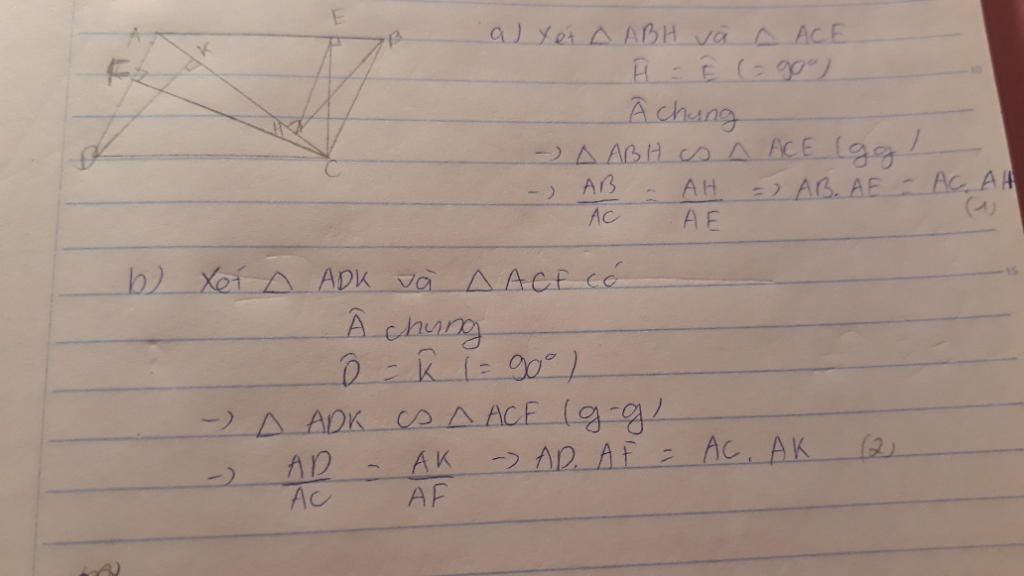 A E B
F K
H
D C
a) Xét △ ABH và △ ACE
Ĥ = Ê (= 90°)
Â chung
→ △ ABH ∽ △ ACE (gg)
→ AB/AC = AH/AE => AB. AE = AC. AH
(1)
b) Xét △ ADK và △ ACF có
Â chung
D̂ = K̂ (= 90°)
→ △ ADK ∽ △ ACF (g-g)
→ AD/AC = AK/AF → AD. AF = AC. AK (2)